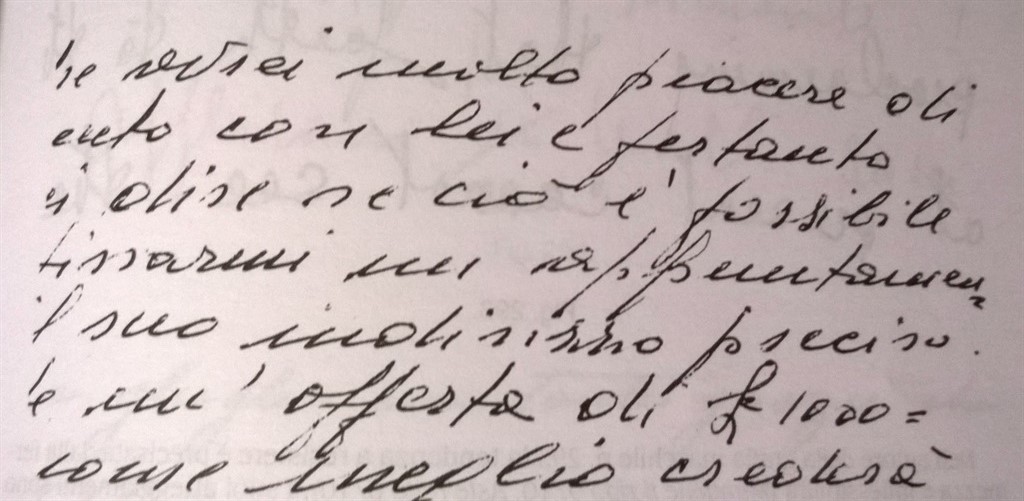 se avrei molto piacere di
ento con lei e pertanto
i dire se ciò è possibile
fissarmi un appuntamen=
l suo indirizzo preciso.
e un' offerta di £ 1000=
come meglio crederà